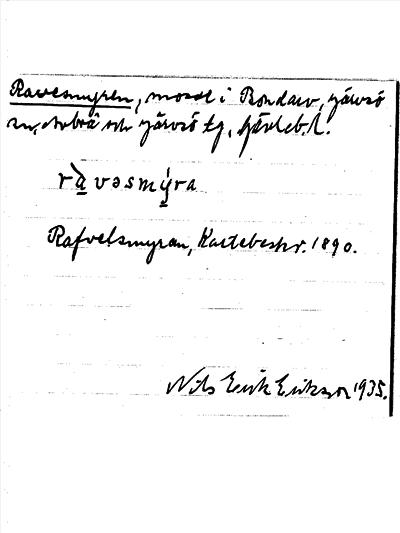 Ravesmyren, mosse i Bondarv, Järvsö
sn, Arbrå och Järvsö tg, Gävleb. l.
råvəsmýra
Rafvelsmyran, Kartebeskr. 1890.
Nils Erik Erikson 1935.